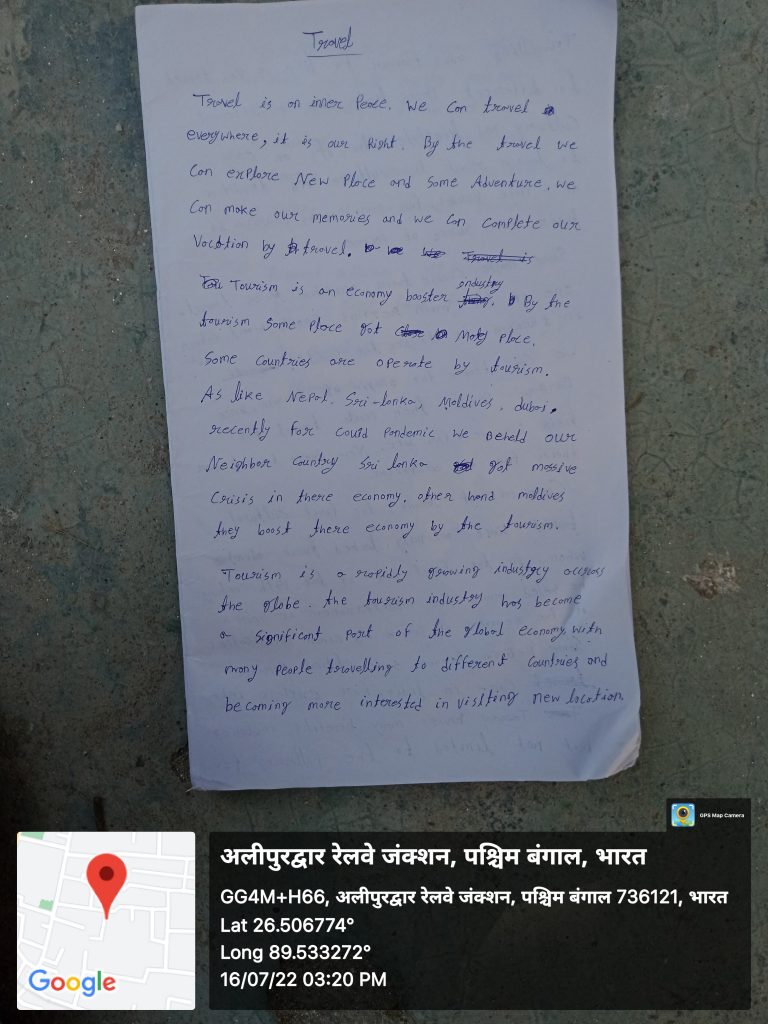 Travel
Travel is an inner Peace. We can travel
everywhere, it is our Right. By the travel we
can explore New Place and Some Adventure. we
can make our memories and we can complete our
Vacation by travel.
Tourism is an economy booster industry. By the
tourism Some Place got Place.
Some Countries are operate by tourism.
As like Nepal. Sri-lanka, Maldives, dubai.
recently for Covid Pandemic We Beheld our
Neighbor Country Sri lanka got massive
Crisis in there economy. other hand maldives
they boost there economy by the tourism.
Tourism is a rapidly growing across
the globe. the tourism industry has become
a significant part of the global economy, with
many People travelling to different Countries and
becoming more interested in visiting new location.
GPS Map Camera
अलीपुरद्वार रेलवे जंक्शन, पश्चिम बंगाल, भारत
GG4M+H66, अलीपुरद्वार रेलवे जंक्शन, पश्चिम बंगाल 736121, भारत
Lat 26.506774°
Long 89.533272°
16/07/22 03:20 PM
Google